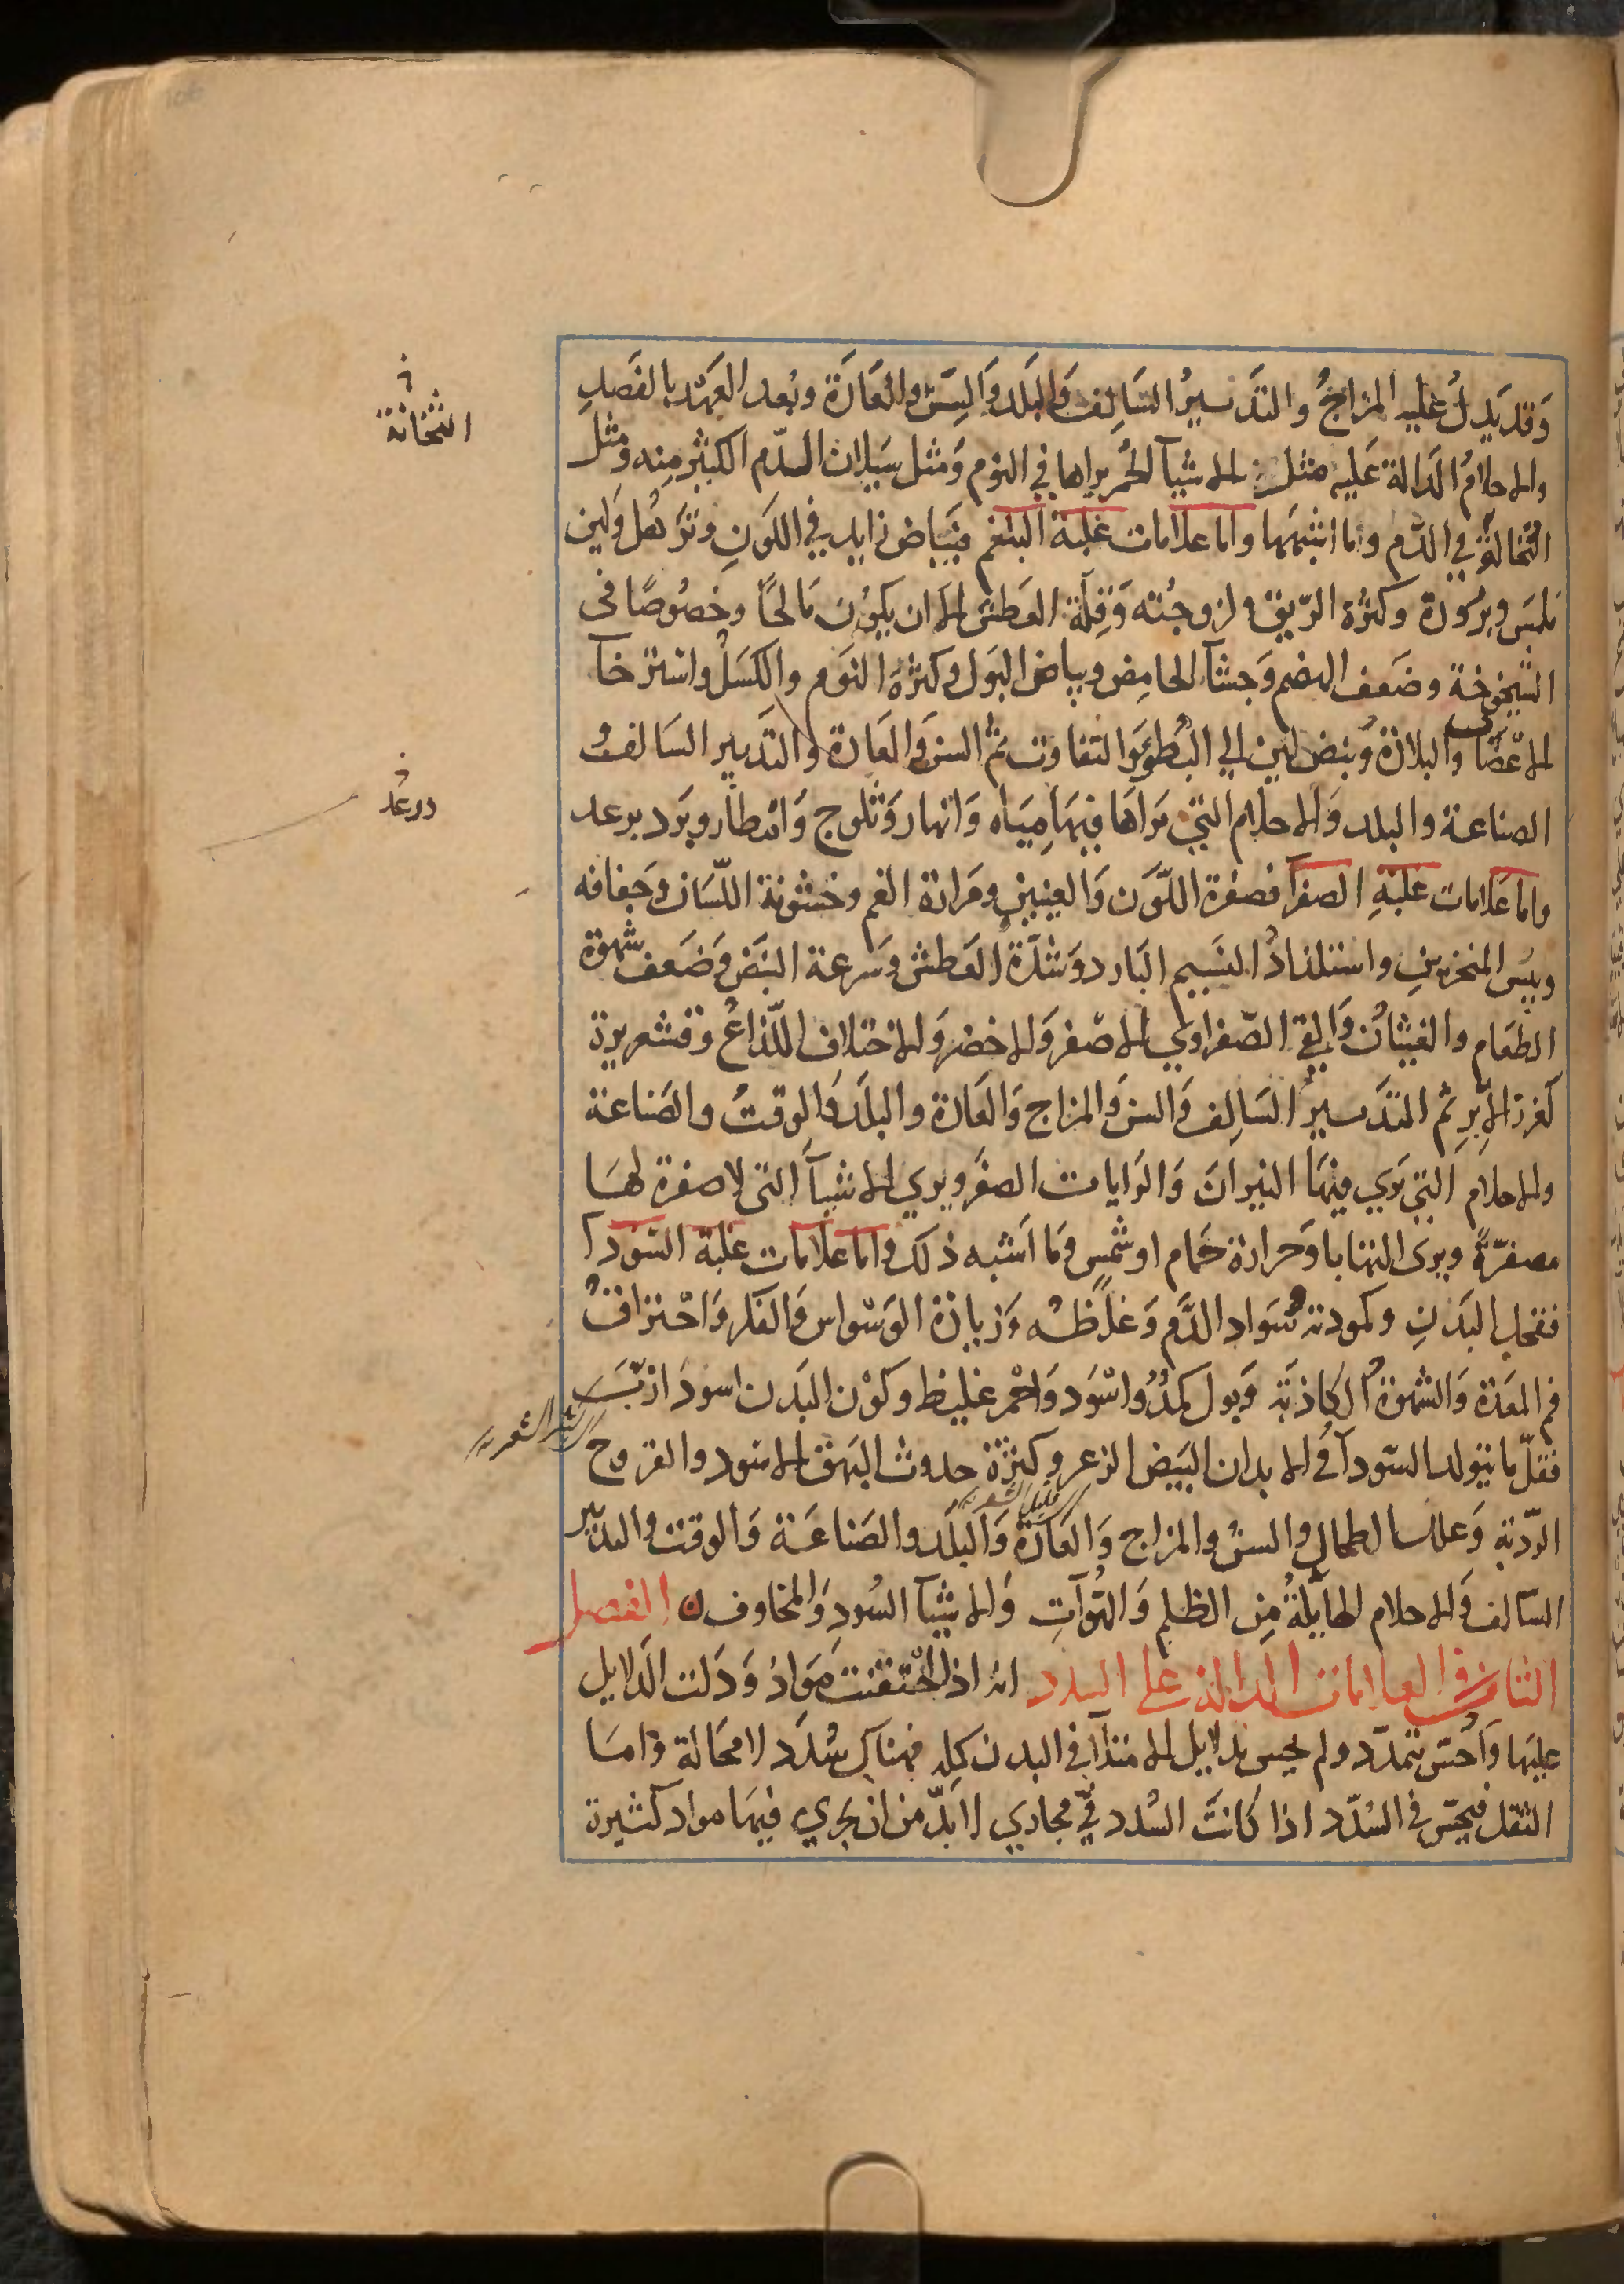 وَقد يَدلُ عليه المزاجُ والتَدبيرُ السَالِف وَالبَلَد وَالسِّن والعَادَة وبُعد العَهد بالفَصدِ
والاحلامُ الدَالة عَليه مثل الاشيآ الحُمر يراها في النوم وَمثل سَيلان الدّم الكثير مِنه ومثل
الثخانة في الدَّم وما اشبهها واما علامات غلبة البلغم فبيَاض زايد في اللَونِ وتَرَهّل ولَين
مَلمَس وبرُودة وكثرة الرّيق ولزوجُته وَقِلّة العَطش الا ان يكون مَالحًا وخصُوصًا فى
الشيخوخة وضَعف الهضم وَجشآ الحامِض وبياض البَول وكثرة النَوم والكَسَل واسترخآ
الاعصَاب والبلادة وُنبض لين الي البُطوءِ وَالتفاوت ثم السن وَالعَادة وَالتدبير السَالف و
الصناعة والبلد وَالاحلام التي يرَاهَا فيهَا مِيَاه وَانهار وَثلوج وَامطار وبَرَد برعد
واما عَلامات غلبةِ الصفرآ فصفرة اللَّون وَالعينين ومَرارة الفم وخشونة اللّسَان وجَفافه
ويبس المنخرين واستلذاذُ النسيم البَارد وَشدّة العَطش وَسرعة النبَض وَضَعف شهوة
الطعَام والغثيان وَالقي الصّفراوي الاصفر وَالاخضر وَالاختلاف اللّذاعُ وقشعريرة
كغرز الابَرِ ثم التدَبيرُ السَالِف وَالسن وَالمزاج وَالعَادة والبلَد وَالوقتُ والصَناعة
والاحلام التي يرَي فيهَا النيران وَالرَايات الصفر ويري الاشيآ التى لا صفرة لهَا
مصفرّةً ويرى التهابا وَحرارة حَمام او شمسٍ وَما اشبه ذلك واما علامات غلبة السَودآ
فقحل البَدَنِ وكمودته وسَواد الدَّم وَغلظه وَزيادة الوَسواس وَالفكر وَاحتراقُ
فم المعَدة وَالشهوة الكاذبَة وَبول كمِدُ وَاسوَد وَاحمر غليظ وكوَن البَدن اسود ازبّ
فقلّ ما يتولد السّودآ في الابدان البَيض الزعر وكثرة حدوث البَهق الاسود والقروح
الرّديّة وَعلل الطحال والسن والمزاج وَالعَادَة وَالبلَد والصَناعَة وَالوقت والتدبير
السّالف وَالاحلام الهايلةُ مِن الظلم وَالهُوّاتِ وَالاشيآ السُود وَالمخاوف الفصل
الثامن في العلامات الدالة علي السدد انه اذا احتقنت مَوَادُ وَدَلت الدَلايل
عليهَا وَاحُسّ بتمدّد ولم يحس بدلايل الامتلآ في البدن كله فهناك سُدَد لا محَالة وَامَا
الثقل فيحَسّ في السُدَد اذا كانَت السُدد في مجاري لا بُدّ من ان يجري فيهَا مواد كثيرة
الثخانة
ورعد
قليل الشعر